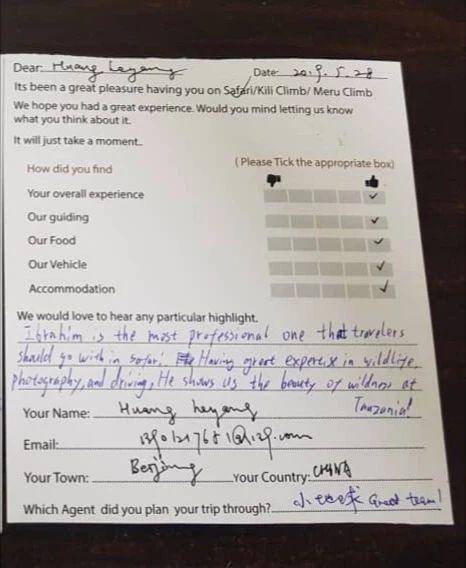 Dear: Huang Leyang Date: 2019.5.28
Its been a great pleasure having you on Safari/Kili Climb/ Meru Climb
We hope you had a great experience. Would you mind letting us know
what you think about it.
It will just take a moment..
How did you find (Please Tick the appropriate box)
Your overall experience
Our guiding
Our Food
Our Vehicle
Accommodation
We would love to hear any particular highlight.
Ibrahim is the most professional one that travelers
should go with in safari. Having great expertise in wildlife,
photography, and driving, He shows us the beauty of wildness at
Tanzania!
Your Name: Huang Leyang
Email:
Your Town: Beijing Your Country: CHINA
Which Agent did you plan your trip through? Great team!